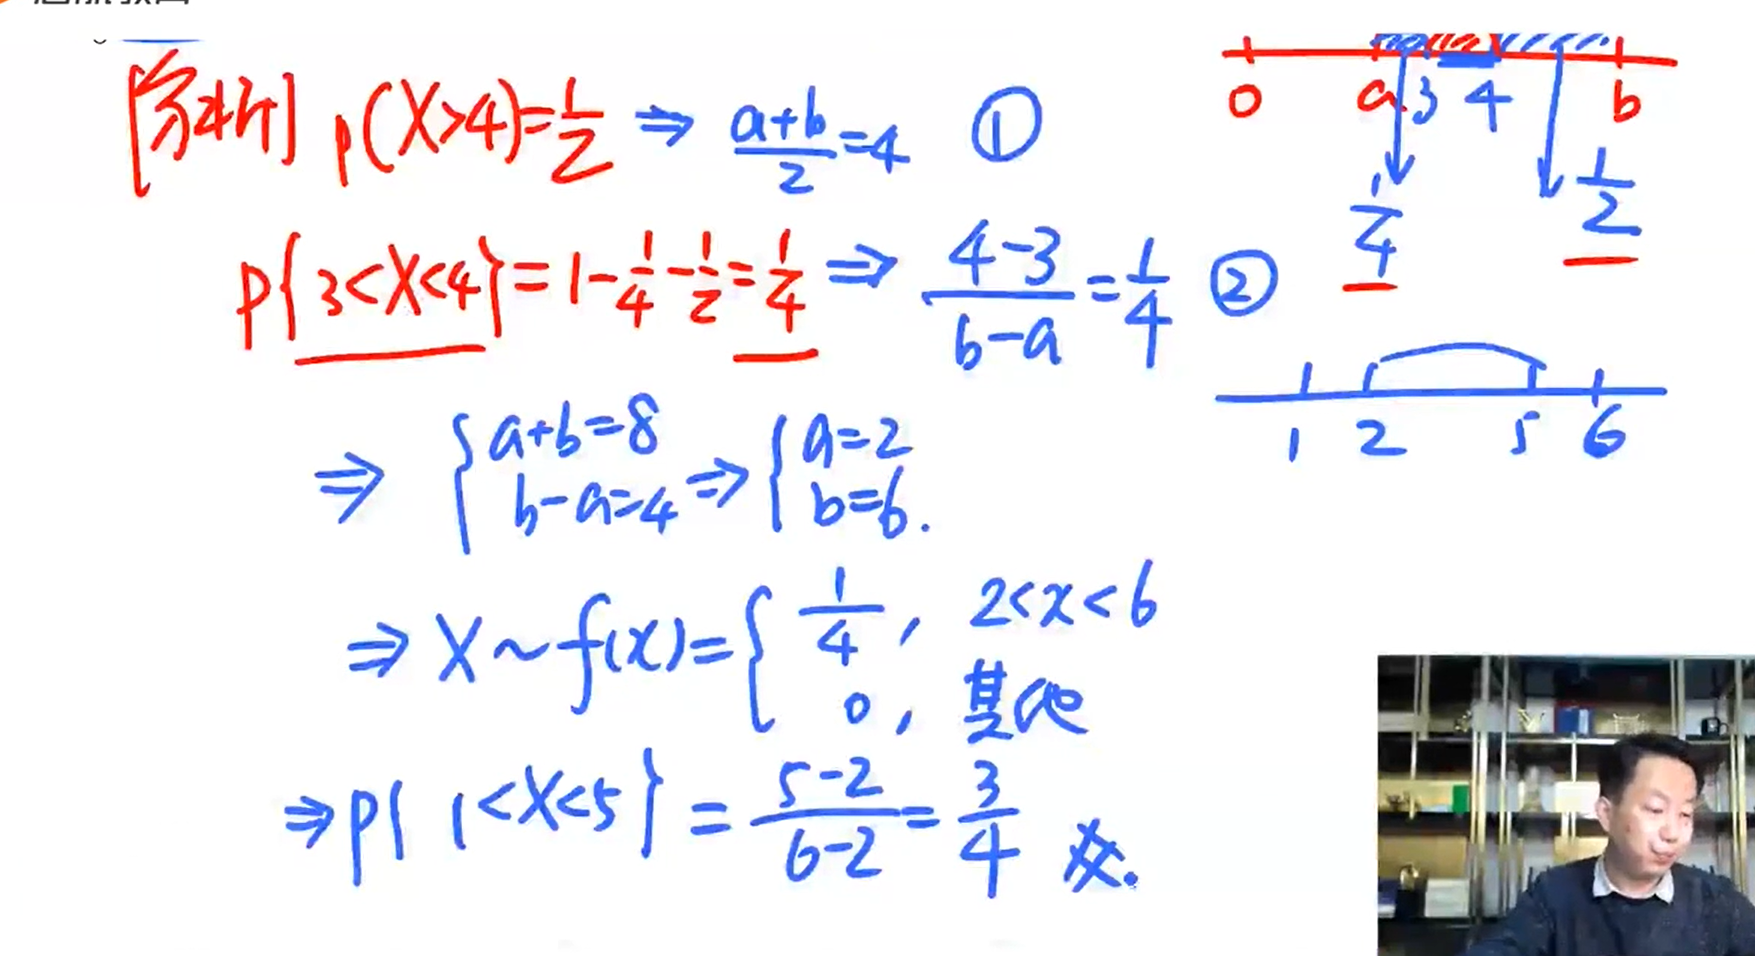 [分析] P(X>4)=1/2 ⇒ (a+b)/2=4 ①
P{3<X<4}=1-1/4-1/2=1/4 ⇒ (4-3)/(b-a)=1/4 ②
⇒ { a+b=8 ⇒ { a=2
b-a=4 b=6.
⇒ X~f(x)={ 1/4, 2<x<6
0, 其他
⇒ P{ 1<X<5 } = (5-2)/(6-2) = 3/4
0 a 3 4 b
1/4 1/2
1 2 5 6